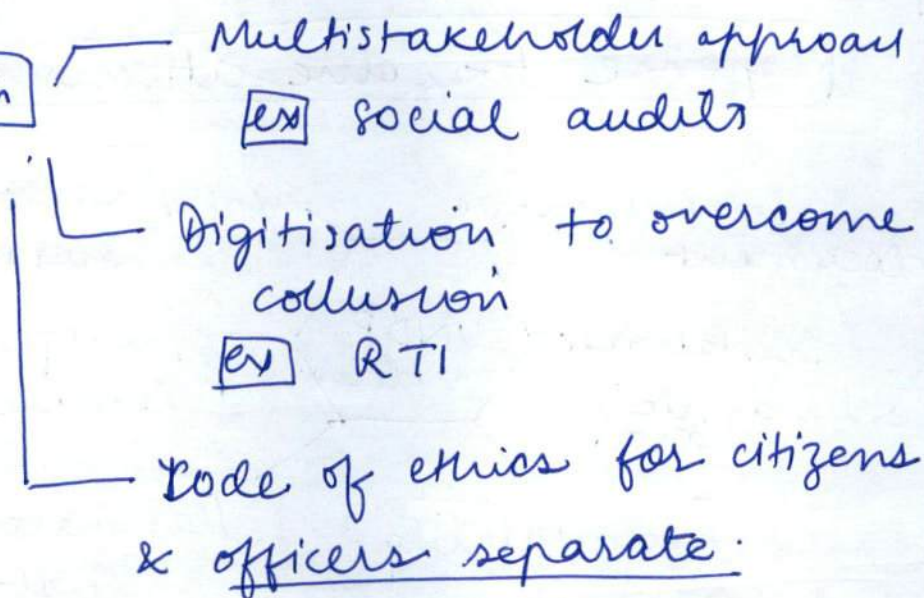 Multistakeholder approac
n
ex social audits
Digitisation to overcome
collusion
ex RTI
Code of ethics for citizens
& officers separate.